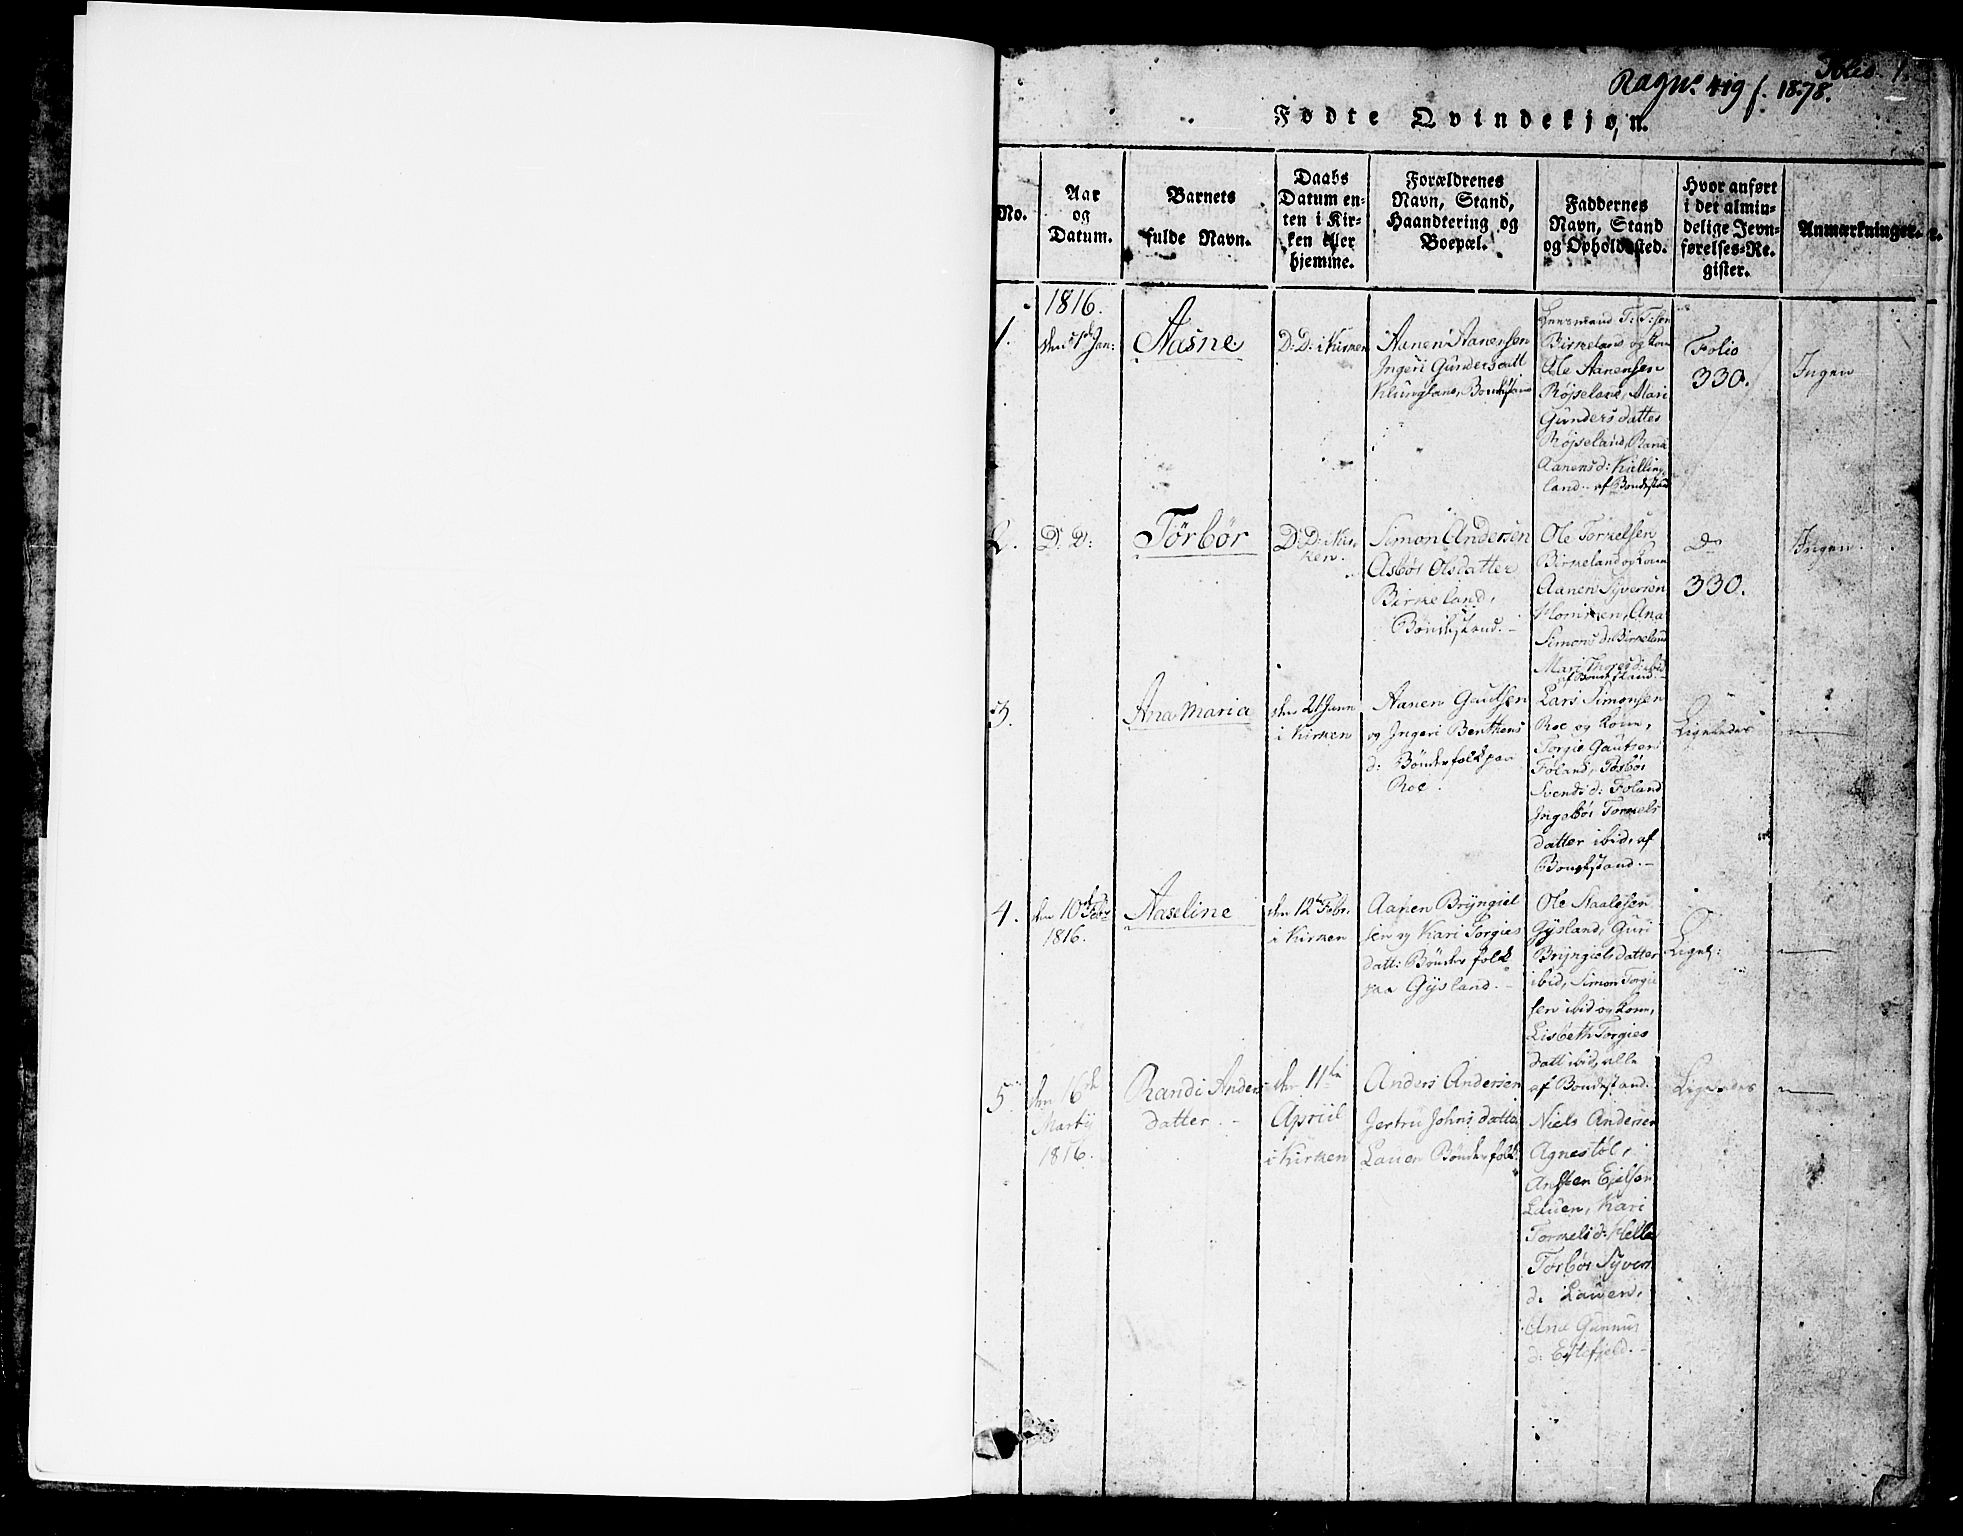 Folio 1.
Ragn. 419 f. 1878.
Fødte Qvindekjøn.
No.
Aar
og
Datum.
Barnets
fulde Navn.
Daabs
Datum en-
ten i Kir-
ken eller
hjemme.
Forældrenes
Navn, Stand,
Haandtering og
Boepæl.
Faddernes
Navn, Stand
og Opholdssted.
Hvor anført
i det almin-
delige Jevn-
førelses-Re-
gister.
Anmærkninger.
1.
1816.
den 1de Jan:
Aasne
D: D: i Kirken
Aanen Aanensen
Ingeri Gundersdatt
Klungland, Bondestand
Lensmand T: T:søn
Birkeland og Kone
Ole Aanensen
Røjseland, Mari
Gundersdatter
Røjseland, Rana
Aanensd:
land. af Bondestand
Folio
330.
Ingen
2.
D: D:
Torbør
D: D: i Kir-
ken.
Simon Andersen
Asbør Olsdatter
Birkeland,
Bondestand.
Ole Torkelsen
Birkeland og Kone
Aanen Syversen
Ana
Simonsd: Birkeland
Mari ibid
af Bondestand.
Do
330.
Ingen.
3.
Ana Maria
den 21 Janu
i Kirken
Aanen Gautsen
og Ingeri Benthens
d: Bønderfolk paa
Roe.
Lars Simonsen
Roe og Kone,
Torgie Gautsen
Foland, Torbør
Svendsd: Foland
Ingebør Torkels
datter ibid, af
Bondestand.
Ligeledes
4.
den 10de Febr
1816.
Aaseline
den 12te Febr.
i Kirken
Aanen Bryngiel
sen og Kari Torgies
datt: Bønder folk
paa Gysland.
Ole Staalesen
Gysland, Guri
Bryngielsdatter
ibid, Simon Torgie
sen ibid og Kone,
Lisbeth Torgies
datt ibid, alle
af Bondestand.
Ligel:
5
den 16de
Marty
1816.
Randi Anders
datter.
den 11te
Apriil
i Kirken
Anders Andersen
Jertru Johnsdatter
Lauen Bønder folk.
Niels Andersen
Agnestøl,
Ansten Ejelsøn
Lauen, Kari
Torkelsd: Helle
Torbør Syvers
d: Lauen,
Ane Gunnus
d: Ejlefjeld.
Ligeledes